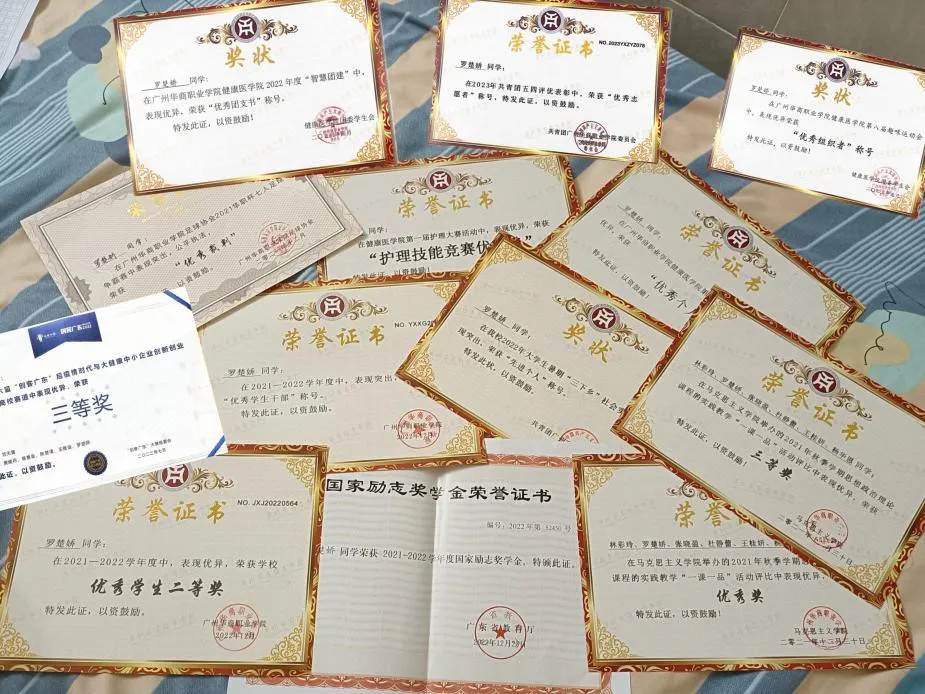 奖状
罗楚娇 同学：
在广州华商职业学院健康医学院2022年度“智慧团建”中，
表现优异，荣获“优秀团支书”称号。
特发此证，以资鼓励。
荣誉证书
NO.2023YXZYZ076
罗楚娇 同学：
在2023年共青团五四评优表彰中，荣获“优秀志
愿者”称号，特发此证，以资鼓励。
共青团广州华商职业学院委员会
奖状
罗楚娇 同学：
在广州华商职业学院健康医学院第八届趣味运动会
中，表现优异荣获
“优秀组织者”称号
特发此证，以资鼓励！
罗楚娇 同学：
在广州华商职业学院足球协会2021华职杯七人足球
争霸赛中表现突出，公平执法，
荣获
“优秀裁判”
以资鼓励。
荣誉证书
同学：
在健康医学院第一届护理大赛活动中，表现优异，荣获
“护理技能竞赛优
特发此证，以资鼓励！
荣誉证书
罗楚娇 同学：
“优秀个
荣誉证书
NO. YXXG2
罗楚娇 同学：
在2021—2022学年度中，表现突出，
“优秀学生干部”称号。
特发此证，以资鼓励。
广州华商职业学院
2022年12月
奖状
罗楚娇 同学：
在我校2022年大学生暑期“三下乡”社会实
现突出，荣获“先进个人”称号。
特发此状，以资鼓励。
荣誉证书
林彩玲、罗楚娇、张晓盈、杜静蕾、王桂妍、杨华恩 同学：
在马克思主义学院举办的2021年秋季学期思想政治理论
课程的实践教学“一课一品”活动评比中表现优异，荣获
三等奖
特发此证，以资鼓励！
“创客广东”后疫情时代与大健康中小企业创新创业
高校赛道中表现优异，荣获
三等奖
此证，以资鼓励。
二〇二二年七月
荣誉证书
NO: JXJ20220564
罗楚娇 同学：
在2021—2022学年度中，表现优异，荣获学校
优秀学生二等奖
特发此证，以资鼓励。
广州华商职业学院
2022年12月
国家励志奖学金荣誉证书
编号：2022年第 52450 号
楚娇 同学荣获 2021-2022学年度国家励志奖学金，特颁此证。
广东省教育厅
荣誉证书
林彩玲、罗楚娇、张晓盈、杜静蕾、王桂妍、
在马克思主义学院举办的2021年秋季学期思
课程的实践教学“一课一品”活动评比中表现优异，
优秀奖
特发此证，以资鼓励！
马克思主义学院
二〇二一年十二月二十日